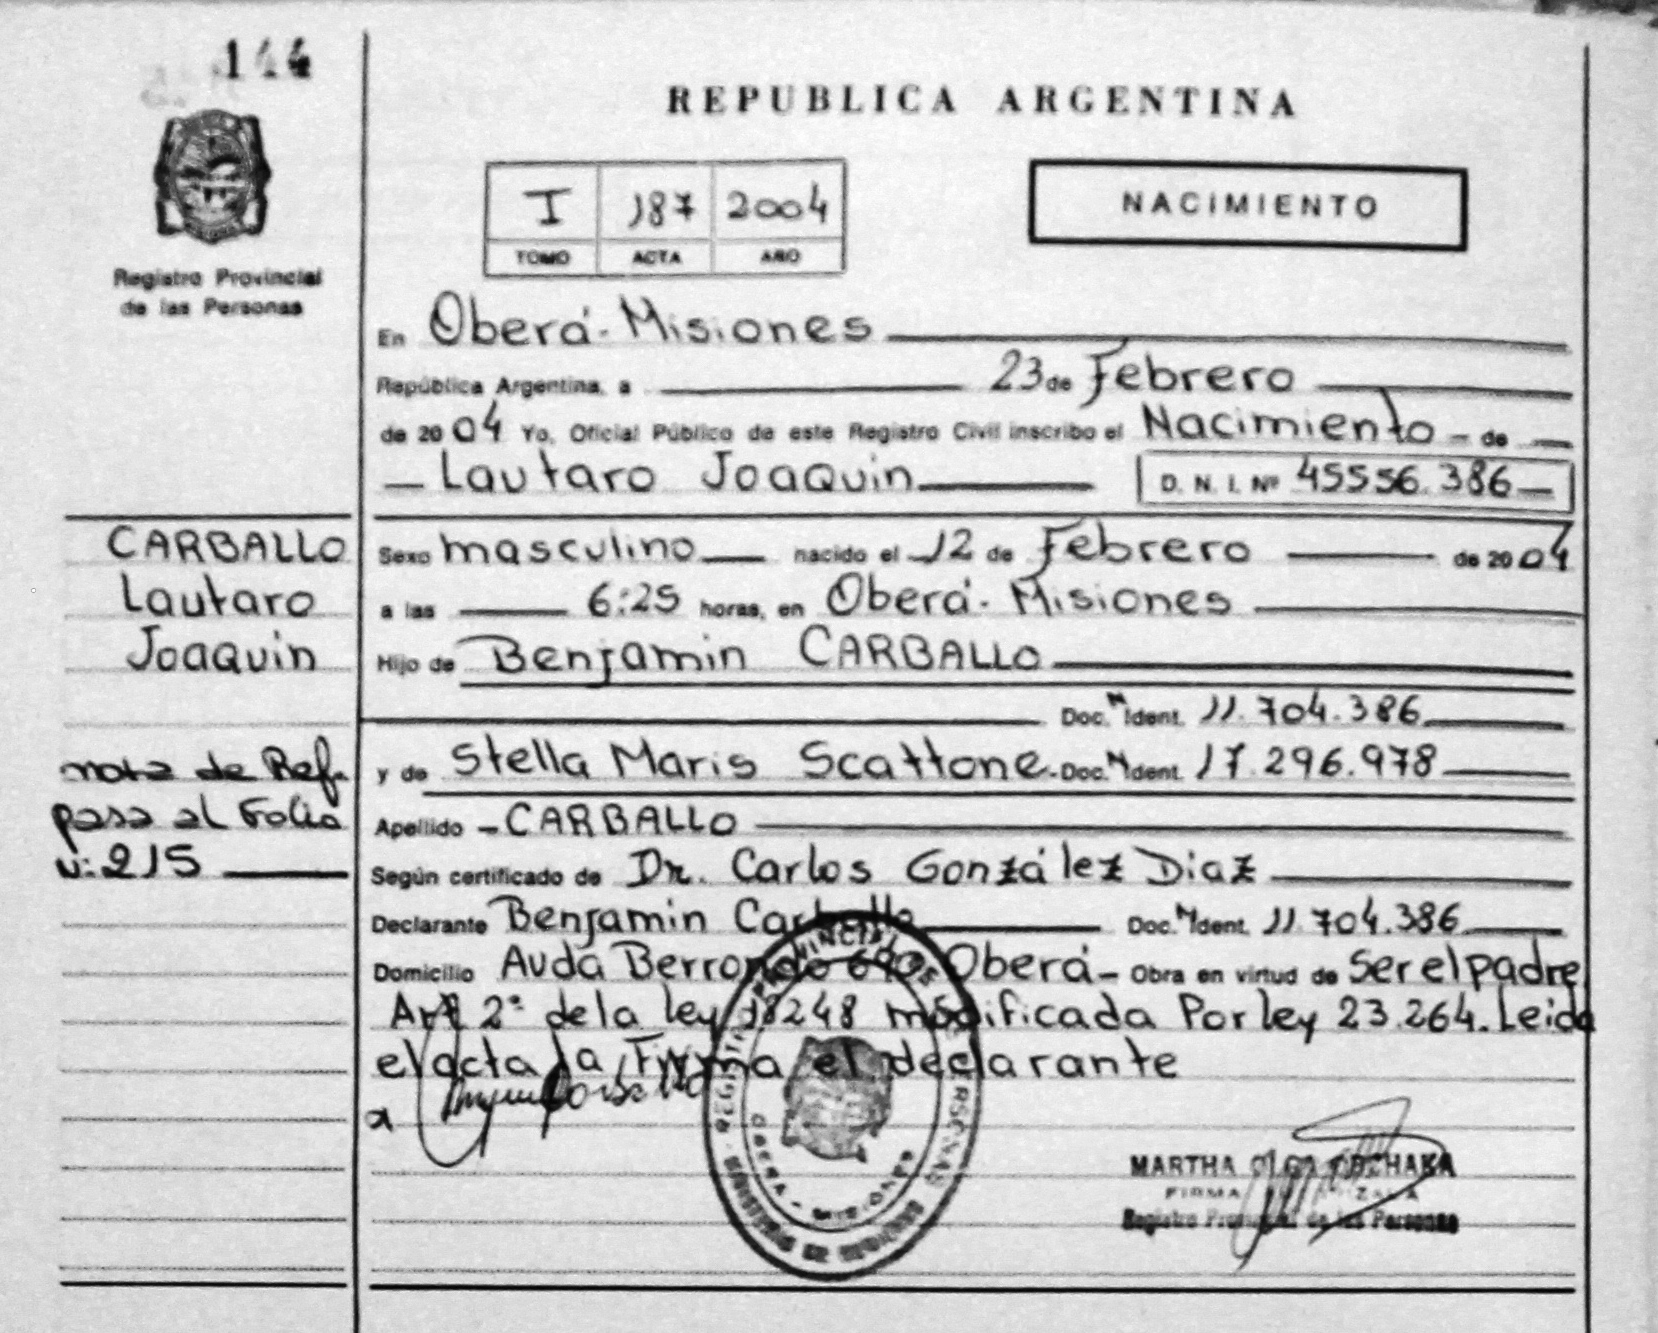 144
Registro Provincial
de las Personas
REPUBLICA ARGENTINA
I 187 2004
TOMO ACTA AÑO
NACIMIENTO
En Oberá - Misiones
República Argentina, a 23 de Febrero
de 2004 Yo, Oficial Público de este Registro Civil inscribo el Nacimiento - de
Lautaro Joaquin D. N. I. Nº 45556.386
Sexo masculino nacido el 12 de Febrero de 2004
a las 6:25 horas, en Oberá - Misiones
Hijo de Benjamin CARBALLO
Doc. N Ident. 11.704.386
y de Stella Maris Scattone - Doc. N Ident. 17.296.978
Apellido - CARBALLO
Según certificado de Dr. Carlos González Diaz
Declarante Benjamin Carballo Doc. N Ident. 11.704.386
Domicilio Avda Berrondo 690 Oberá - Obra en virtud de Ser el padre
Art 2° de la ley 18248 modificada Por ley 23.264. Leida
el acta la Firma el declarante
CARBALLO
Lautaro
Joaquin
nota de Ref.
pasa al Folio
N: 215
OBERA - MISIONES
MARTHA OLGA
FIRMA
Registro Provincial de las Personas